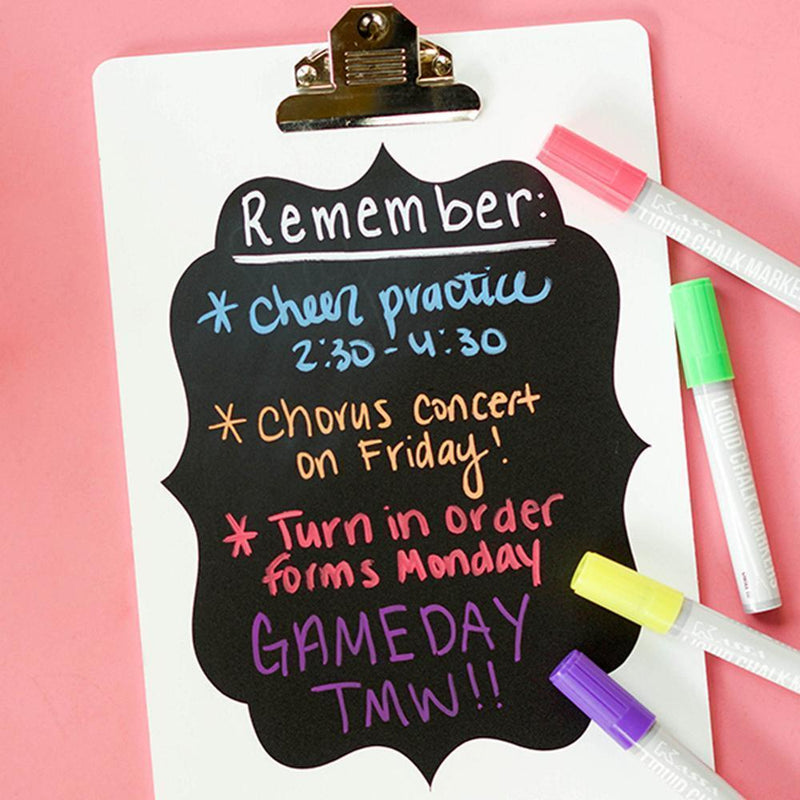 Remember:
* cheer practice
2:30 - 4:30
* Chorus concert
on Friday!
* Turn in order
forms Monday
GAMEDAY
TMW!!
KASSA
LIQUID CHALK MARKE
LIQUID CHALK MARKERS
KASSA
LIQUID CHALK M
KASSA